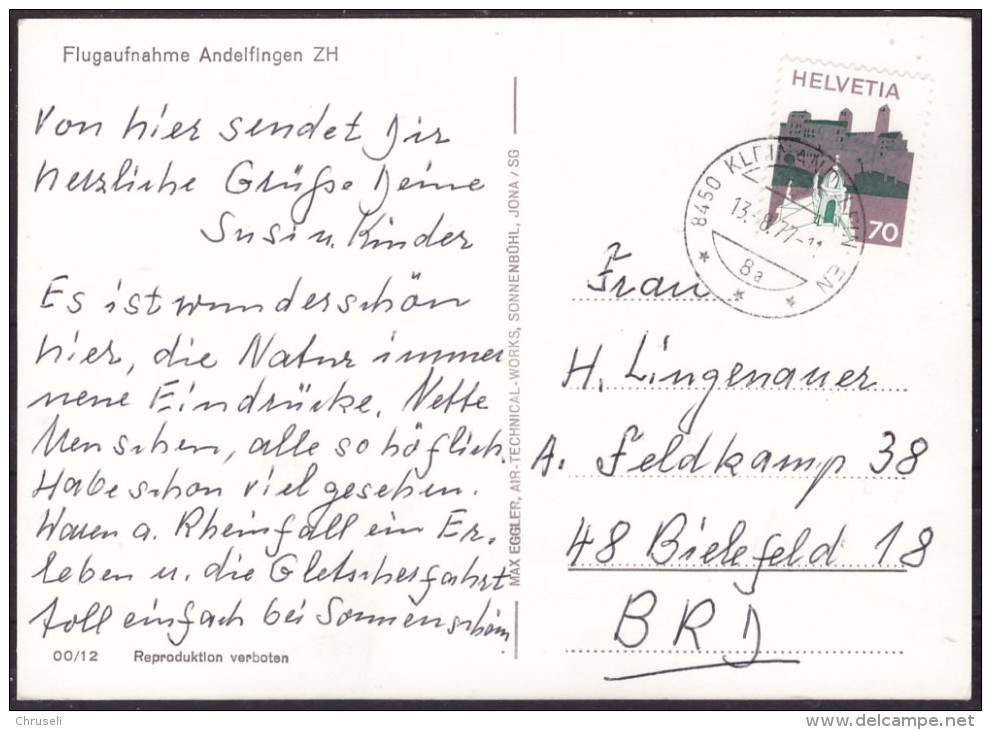 Flugaufnahme Andelfingen ZH
Von hier sendet Dir
herzliche Grüße Deine
Susi u. Kinder
Es ist wunderschön
hier, die Natur immer
neue Eindrücke. Nette
Menschen, alle so höflich.
Habe schon viel gesehen.
Waren a. Rheinfall ein Er.
leben u. die Gletscherfahrt
toll einfach bei Sonnenschein
00/12 Reproduktion verboten
MAX EGGLER, AIR-TECHNICAL-WORKS, SONNENBÜHL, JONA / SG
HELVETIA
70
8450 KLEINANDELFINGEN
13.-8.77-11
8a
Frau
H. Lingenauer
A. Feldkamp 38
48 Bielefeld 18
BRD
Chruseli
www.delcampe.net